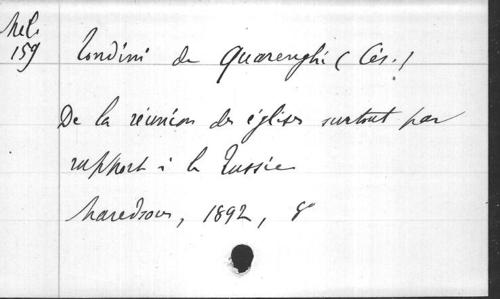 Mél.
159
Tondini de Quarenghi (Cés.)
De la réunion des églises surtout par
rapport à la Russie
Maredsous, 1892, 8°